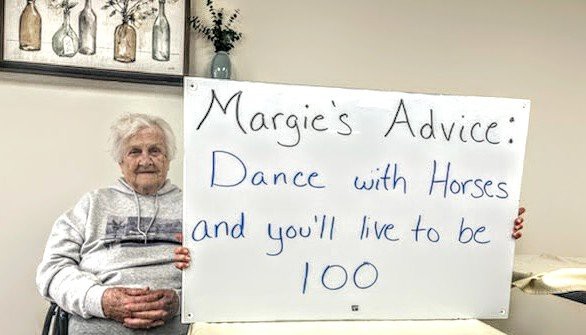 Margie's Advice:
Dance with Horses
and you'll live to be
100